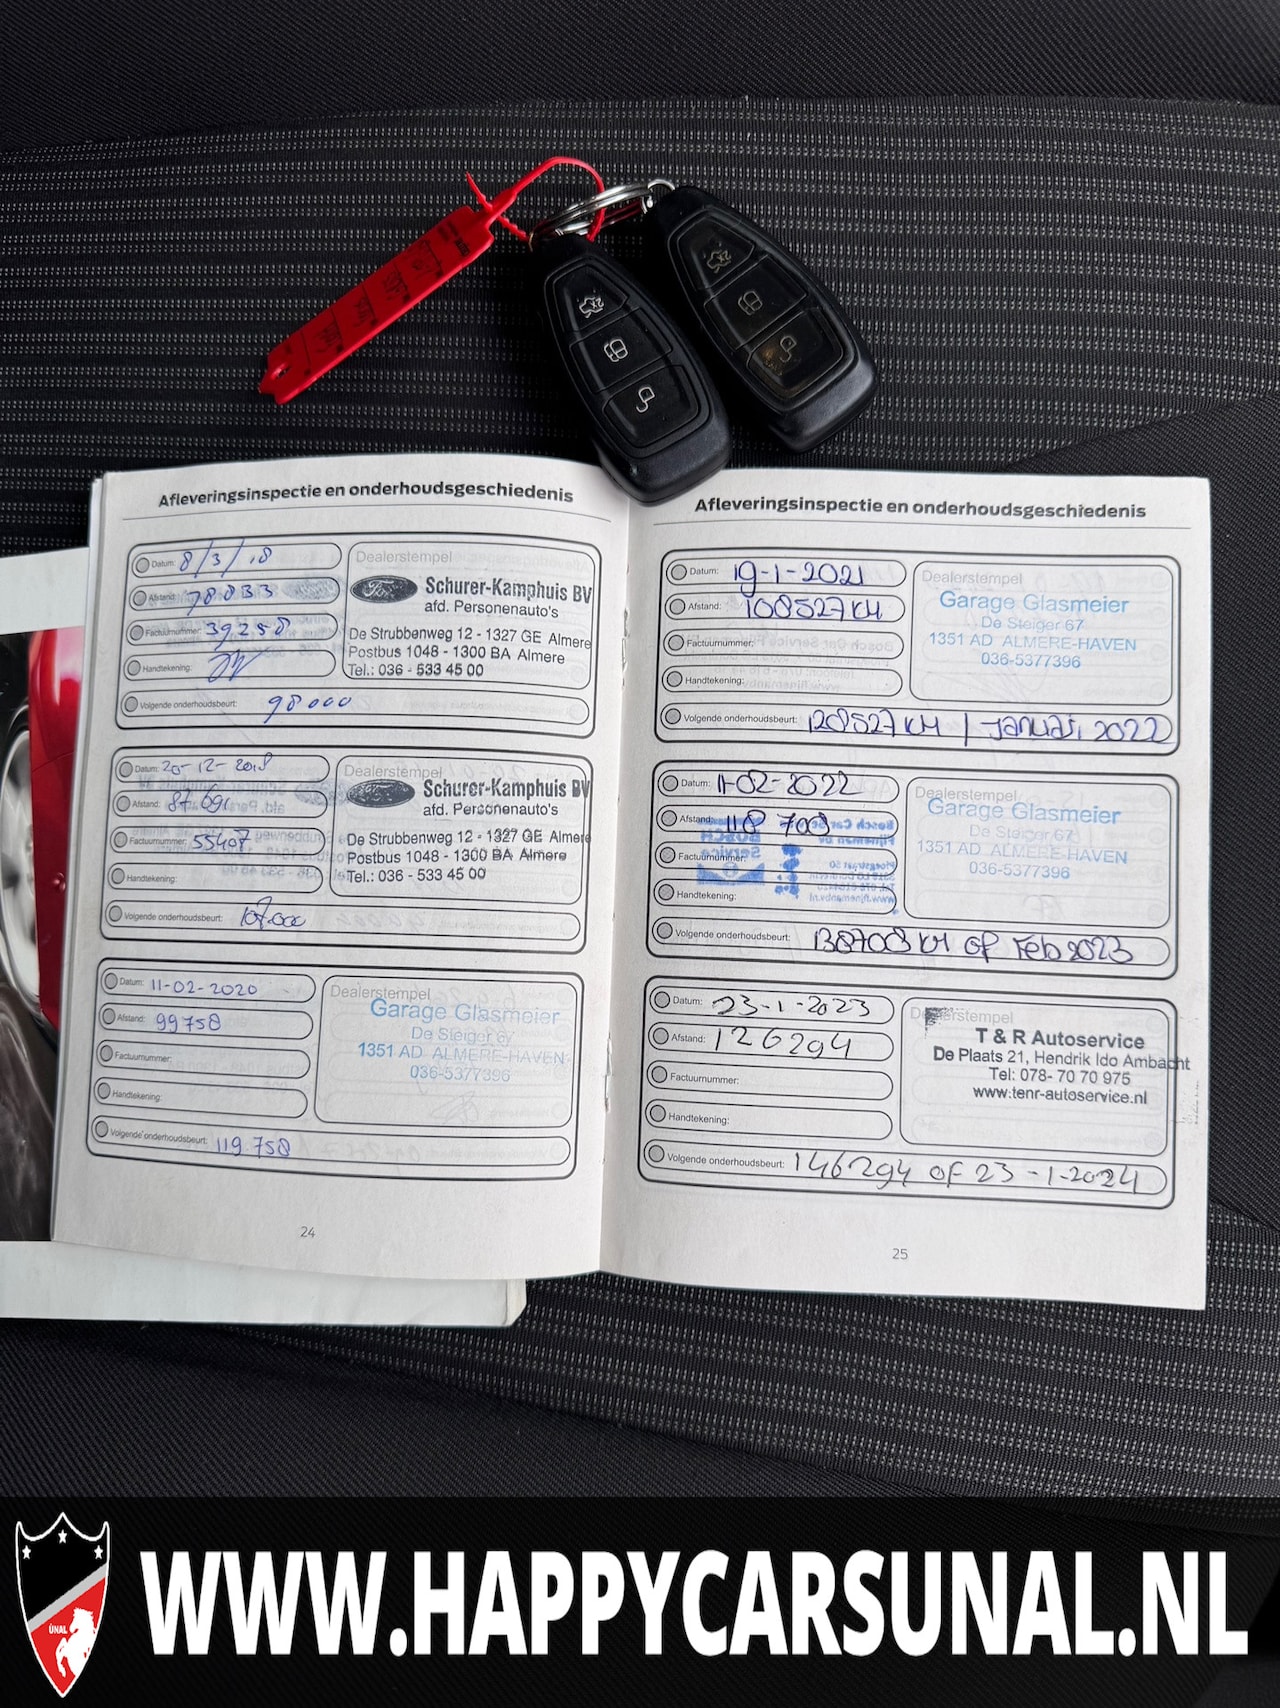 Afleveringsinspectie en onderhoudsgeschiedenis
Datum: 8/3/18
Afstand: 78833
Factuurnummer: 39258
Handtekening:
Volgende onderhoudsbeurt: 98000
Dealerstempel
Ford
Schurer-Kamphuis BV
afd. Personenauto's
De Strubbenweg 12 - 1327 GE Almere
Postbus 1048 - 1300 BA Almere
Tel.: 036 - 533 45 00
Datum: 20-12-2018
Afstand: 87691
Factuurnummer: 55407
Handtekening:
Volgende onderhoudsbeurt: 107.000
Dealerstempel
Schurer-Kamphuis BV
afd. Personenauto's
De Strubbenweg 12 - 1327 GE Almere
Postbus 1048 - 1300 BA Almere
Tel.: 036 - 533 45 00
Datum: 11-02-2020
Afstand: 99758
Factuurnummer:
Handtekening:
Volgende onderhoudsbeurt: 119.758
Dealerstempel
Garage Glasmeier
De Steiger 67
1351 AD ALMERE-HAVEN
036-5377396
24
Afleveringsinspectie en onderhoudsgeschiedenis
Datum: 19-1-2021
Afstand: 108527 KM
Factuurnummer:
Handtekening:
Volgende onderhoudsbeurt: 128527 KM / Januari 2022
Dealerstempel
Garage Glasmeier
De Steiger 67
1351 AD ALMERE-HAVEN
036-5377396
Datum: 11-02-2022
Afstand: 118 708
Factuurnummer:
Handtekening:
Volgende onderhoudsbeurt: 138708 KM of Feb 2023
Dealerstempel
Garage Glasmeier
De Steiger 67
1351 AD ALMERE-HAVEN
036-5377396
Datum: 23-1-2023
Afstand: 126294
Factuurnummer:
Handtekening:
Volgende onderhoudsbeurt: 146294 of 23-1-2024
Dealerstempel
T & R Autoservice
De Plaats 21, Hendrik Ido Ambacht
Tel: 078- 70 70 975
www.tenr-autoservice.nl
25
ÜNAL
WWW.HAPPYCARSUNAL.NL